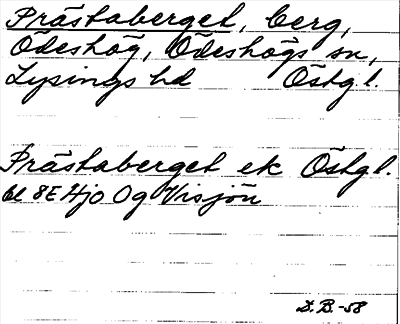 Prästaberget, berg,
Ödeshög, Ödeshögs sn,
Lysings hd Östg.l.
Prästaberget ek Östgl.
bl 8E Hjo Og Visjön
D.B.-58